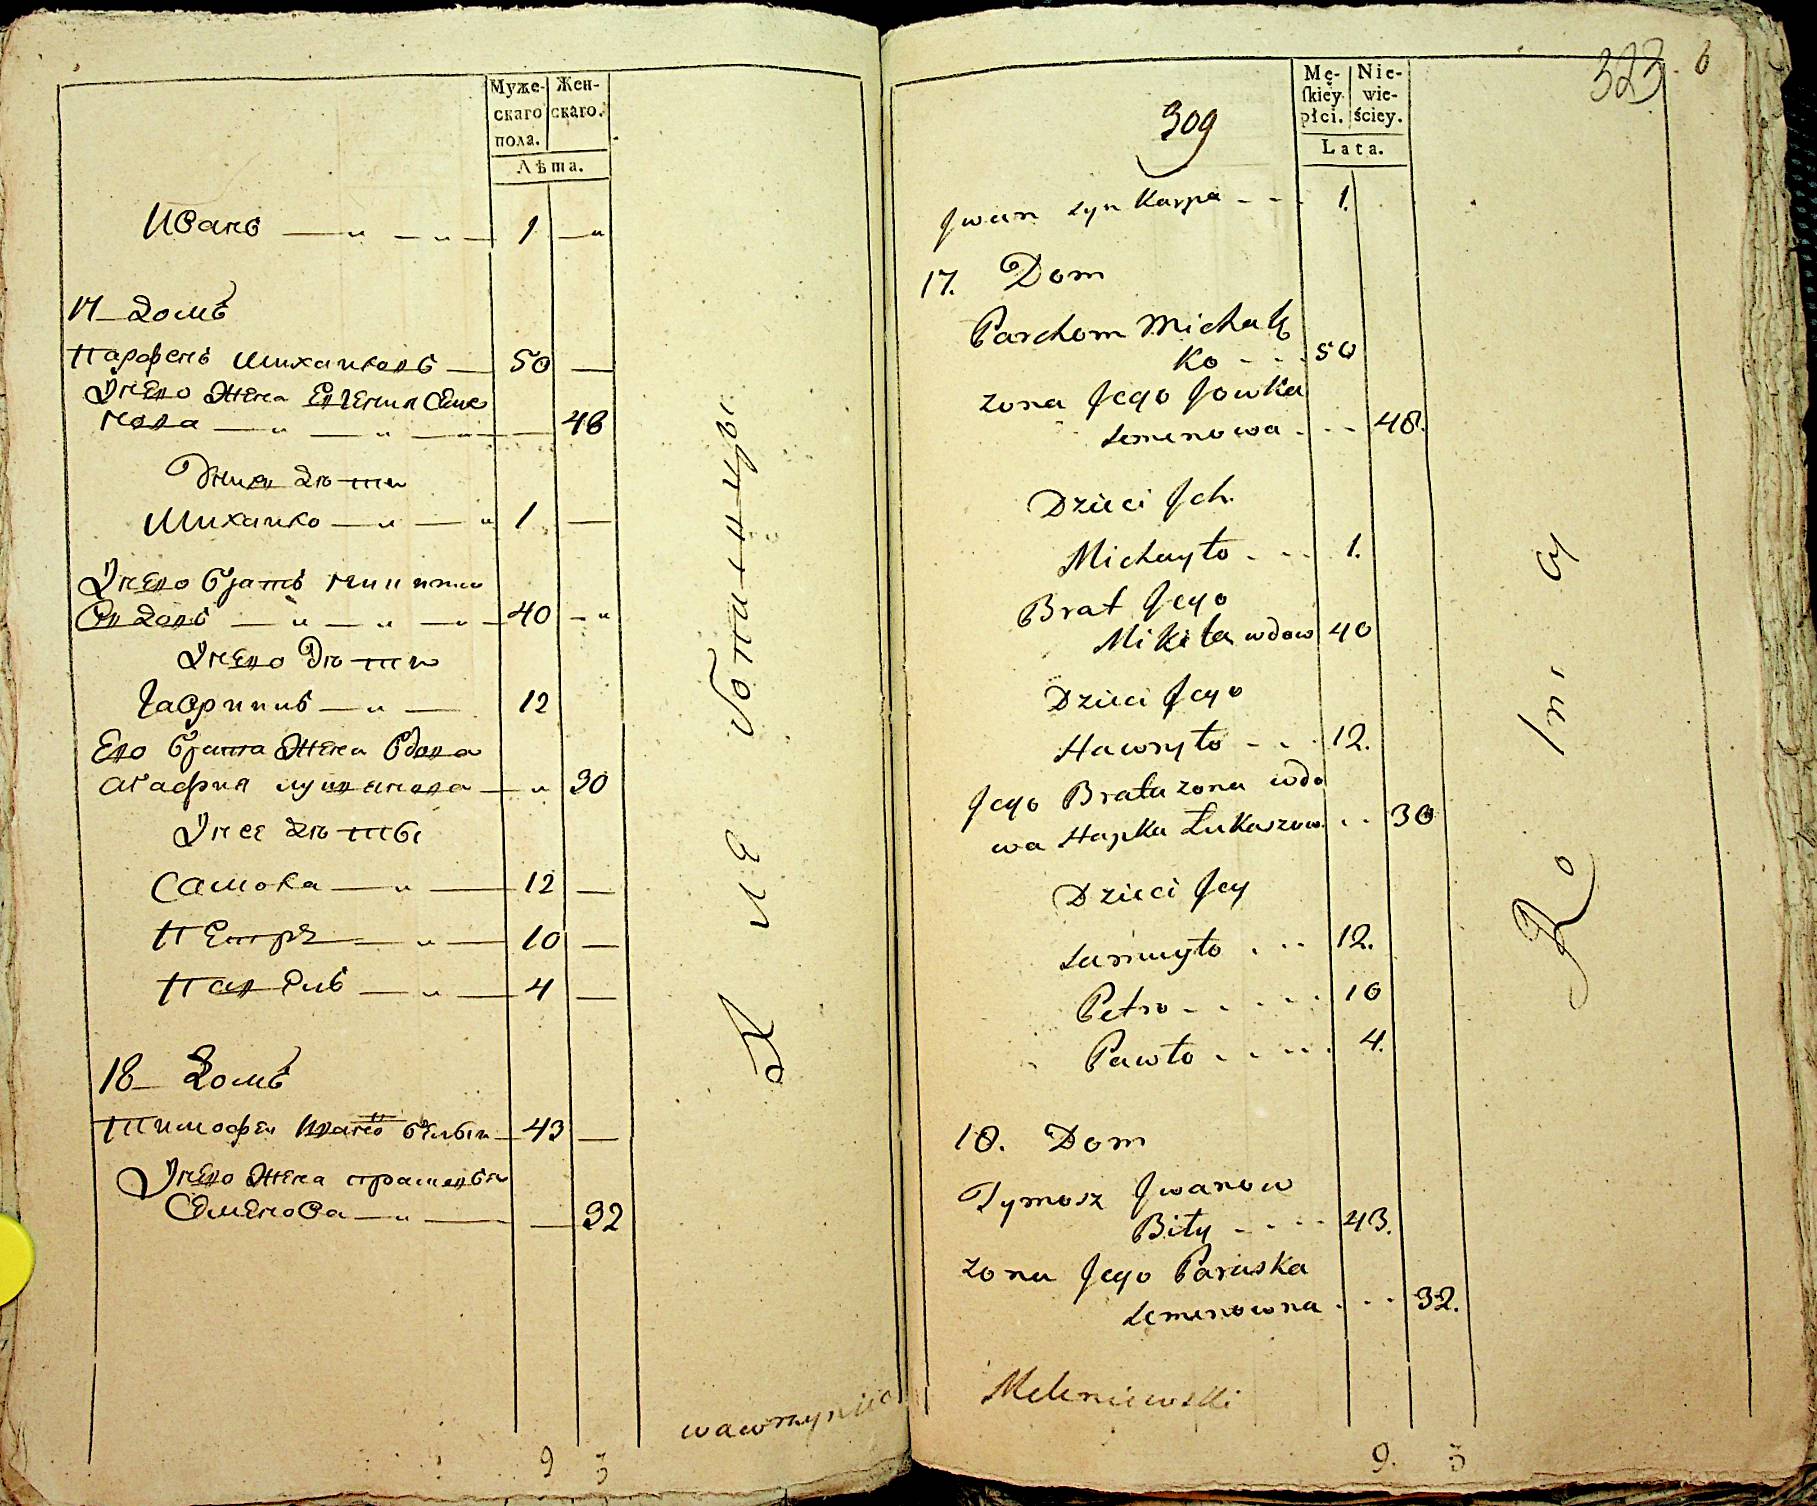 Муже-
скаго
пола.
Жен-
скаго.
Лѣта.
Иванъ 1
17 домъ
Парфенъ Михайловъ 50
У него жена Евгения Семе
нова 48
У них дѣти
Михайло 1
У него братъ Никита
вдовъ 40
У него дѣти
Гаврило 12
Его брата жена вдова
Агафия Лукянова 30
У нее дѣти
Самойла 12
Петръ 10
Павелъ 4
18 домъ
Тимофей Ивановъ Бѣлый 43
У него жена
Семенова 32
wawrzyniec
9 3
323
6
309
Mę-
skiey
płci.
Nie-
wie-
ściey.
Lata.
Jwan syn Karpa 1.
17. Dom
Parchom Michał
ko 50
zona Jego Jowka
Semenowa 48.
Dzieci Jch.
Michayło 1.
Brat Jego
Mikita wdow 40
Dzieci Jego
Hawryło 12.
Jego Brata zona wdo
wa Hapka Łukaszow. 30
Dzieci Jey
Samuyło 12.
Petro 10
Pawło 4.
18. Dom
Tymosz Jwanow
Biły 43.
zona Jego Paraska
Semenowna 32.
Rolni cy
Meleniewski
9. 3